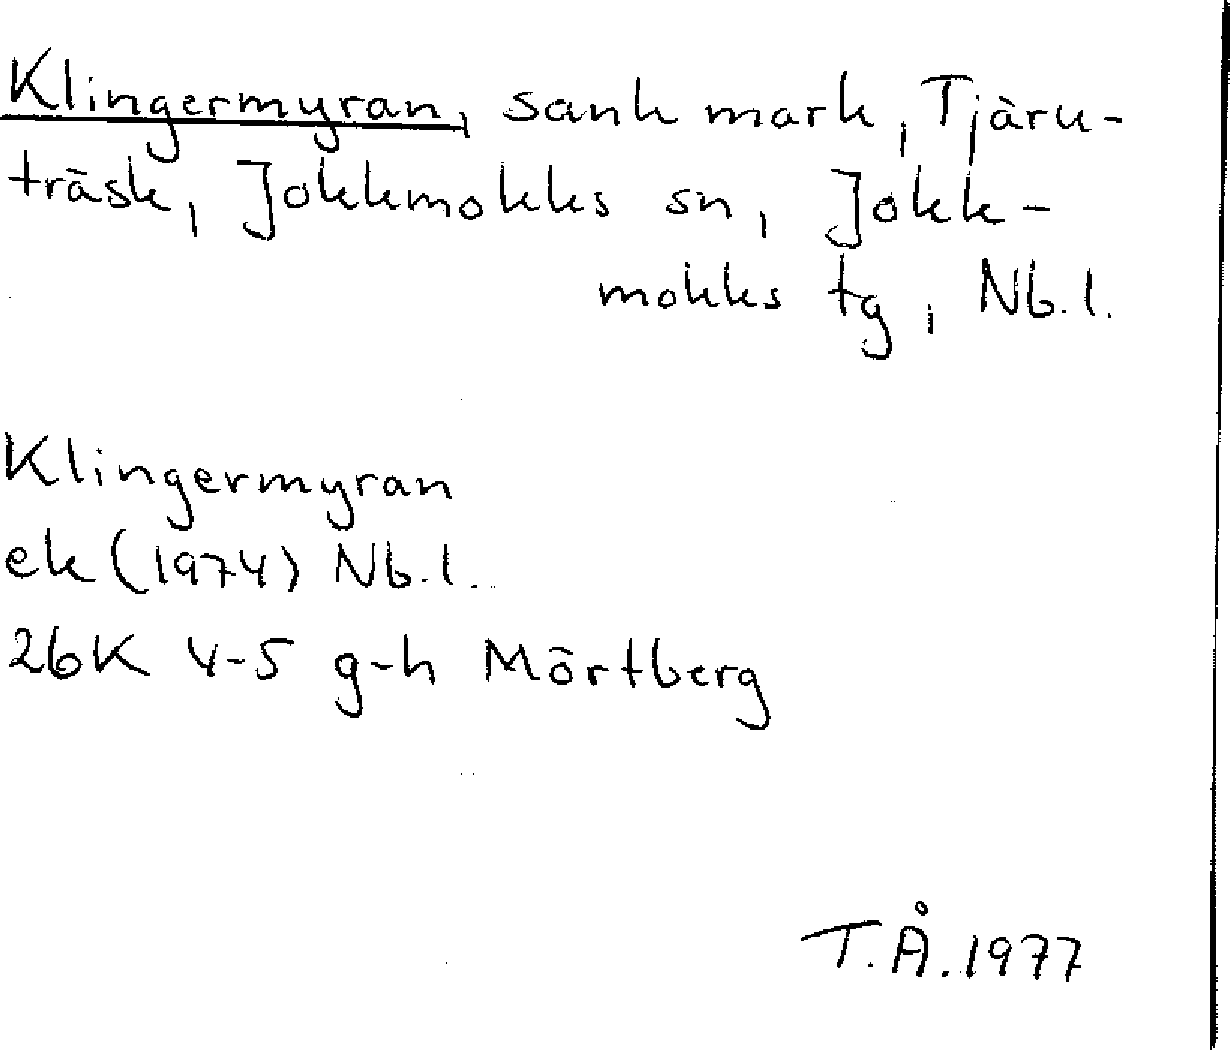 Klingermyran, sank mark, Tjäru-
träsk, Jokkmokks sn, Jokk-
mokks tg, Nb.l.
Klingermyran
ek (1974) Nb.l.
26K 4-5 g-h Mörtberg
T.Å.1977